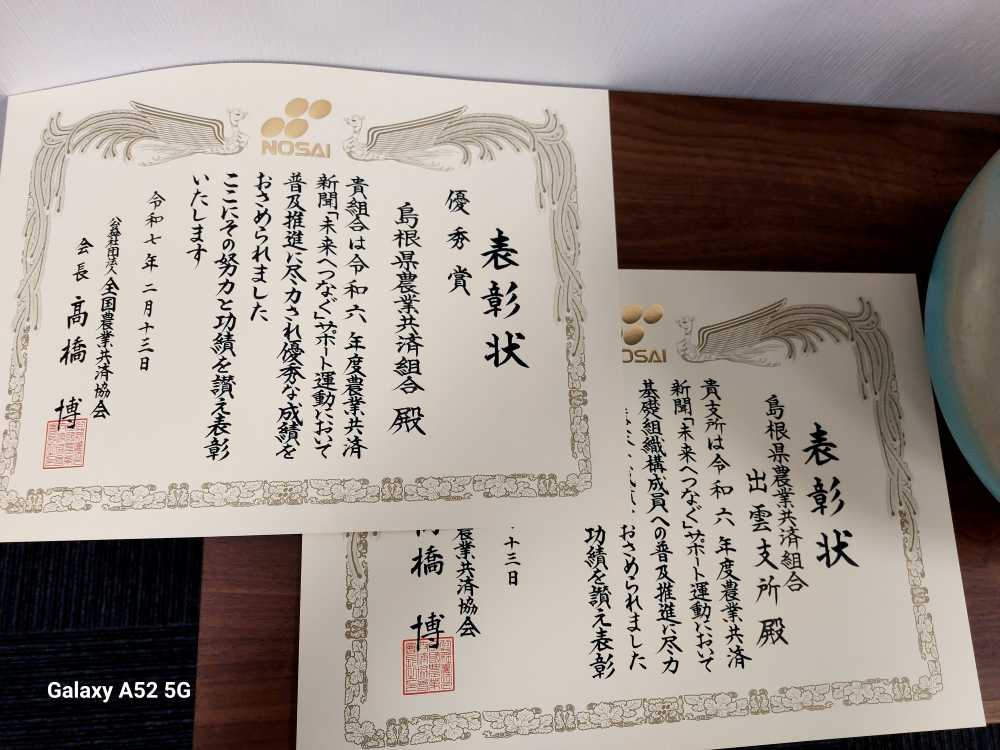 NOSAI
表彰状
優秀賞
島根県農業共済組合 殿
貴組合は令和六年度農業共済
新聞「未来へつなぐ」サポート運動において
普及推進に尽力され優秀な成績を
おさめられました
ここにその努力と功績を讃え表彰
いたします
令和七年二月十三日
公益社団法人全国農業共済協会
会長 髙橋 博
NOSAI
表彰状
島根県農業共済組合
出雲支所 殿
貴支所は令和六年度農業共済
新聞「未来へつなぐ」サポート運動において
基礎組織構成員への普及推進に尽力
おさめられました
功績を讃え表彰
十三日
農業共済協会
橋 博
Galaxy A52 5G